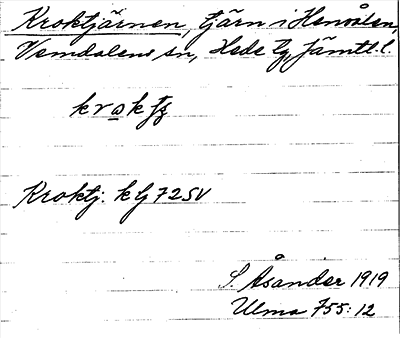 Kroktjärnen, tjärn i Henvålen,
Vemdalens sn, Hede tg, Jämtl. l.
Kroktj. k bj 72 SV
S. Åsander 1919
Ulma 755: 12